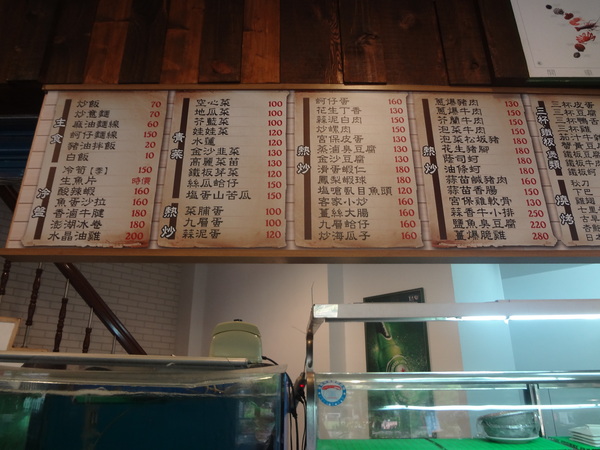 主食
炒飯 70
炒煮麵 70
麻油麵線 60
蚵仔麵線 150
豬油拌飯 20
白飯 10
冷盤
冷筍(季) 150
生魚片 時價
酸辣蝦 160
魚蛋沙拉 160
香滷牛腱 180
澎湖冰卷 180
水晶油雞 200
青菜
空心菜 100
地瓜菜 100
芥藍菜 100
娃娃菜 120
水蓮 120
金沙韭菜 130
高麗菜苗 130
鐵板芽菜 120
絲瓜蛤仔 150
塩蛋山苦瓜 150
熱炒
菜脯蛋 100
九層蛋 100
蒜泥蛋 100
熱炒
蚵仔蛋 160
花生丁香 130
蒜泥白肉 150
炒螺肉 150
宮保皮蛋 130
蒸煎臭豆腐 130
金沙豆腐 130
滑蛋蝦仁 160
鳳梨蝦球 180
塩燒虱目魚頭 120
客家小炒 160
薑絲大腸 160
九層蛤仔 160
炒海瓜子 160
熱炒
蔥爆豬肉 130
蔥爆牛肉 150
芥蘭牛肉 150
泡菜牛肉 150
泡菜松板豬 180
花生豬腳 180
蔭司蚵 180
油條蚵 180
蒜苗鹹豬肉 160
蒜苗香腸 150
宮保雞軟骨 130
蒜香牛小排 250
鹽魚臭豆腐 220
薑爆脆雞 280
三杯.鐵板.澆頭
三杯皮蛋
三杯豆腐
燒烤